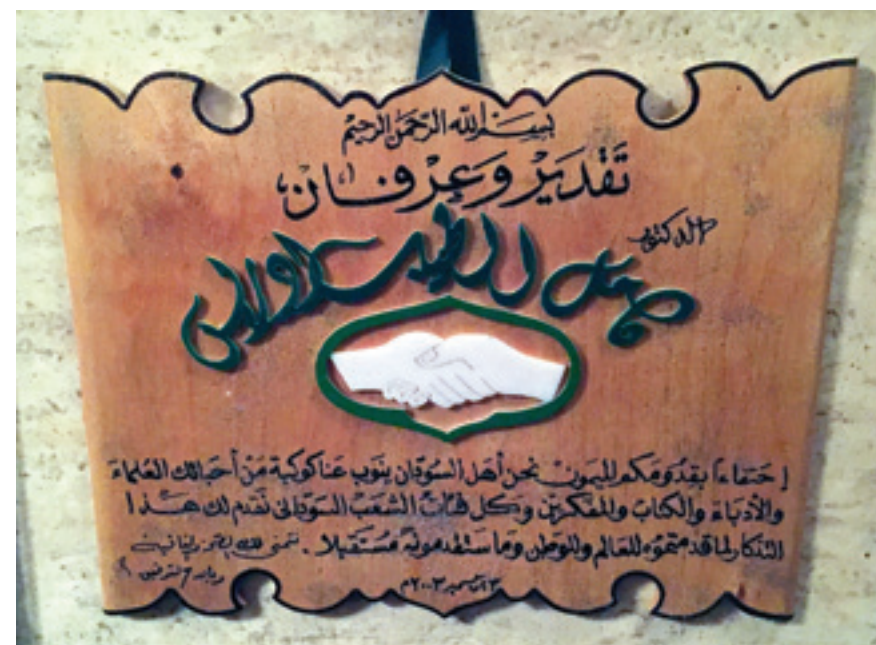 بسم الله الرحمن الرحيم
تَقْدِيرْ وَعِرْفَان
الدكتور
إحتفاءاً بقدومكم الميمون نحن أهل السودان ينوب عنا كوكبة من أحبائك العلماء
والأدباء والكتاب والمفكرين وكل فئات الشعب السوداني نقدم لك هذا
التذكار لما قدمتموه للعالم وللوطن وما ستقدمونه مستقبلا . نتمنى لك
ديسمبر ٢٠٠٣م